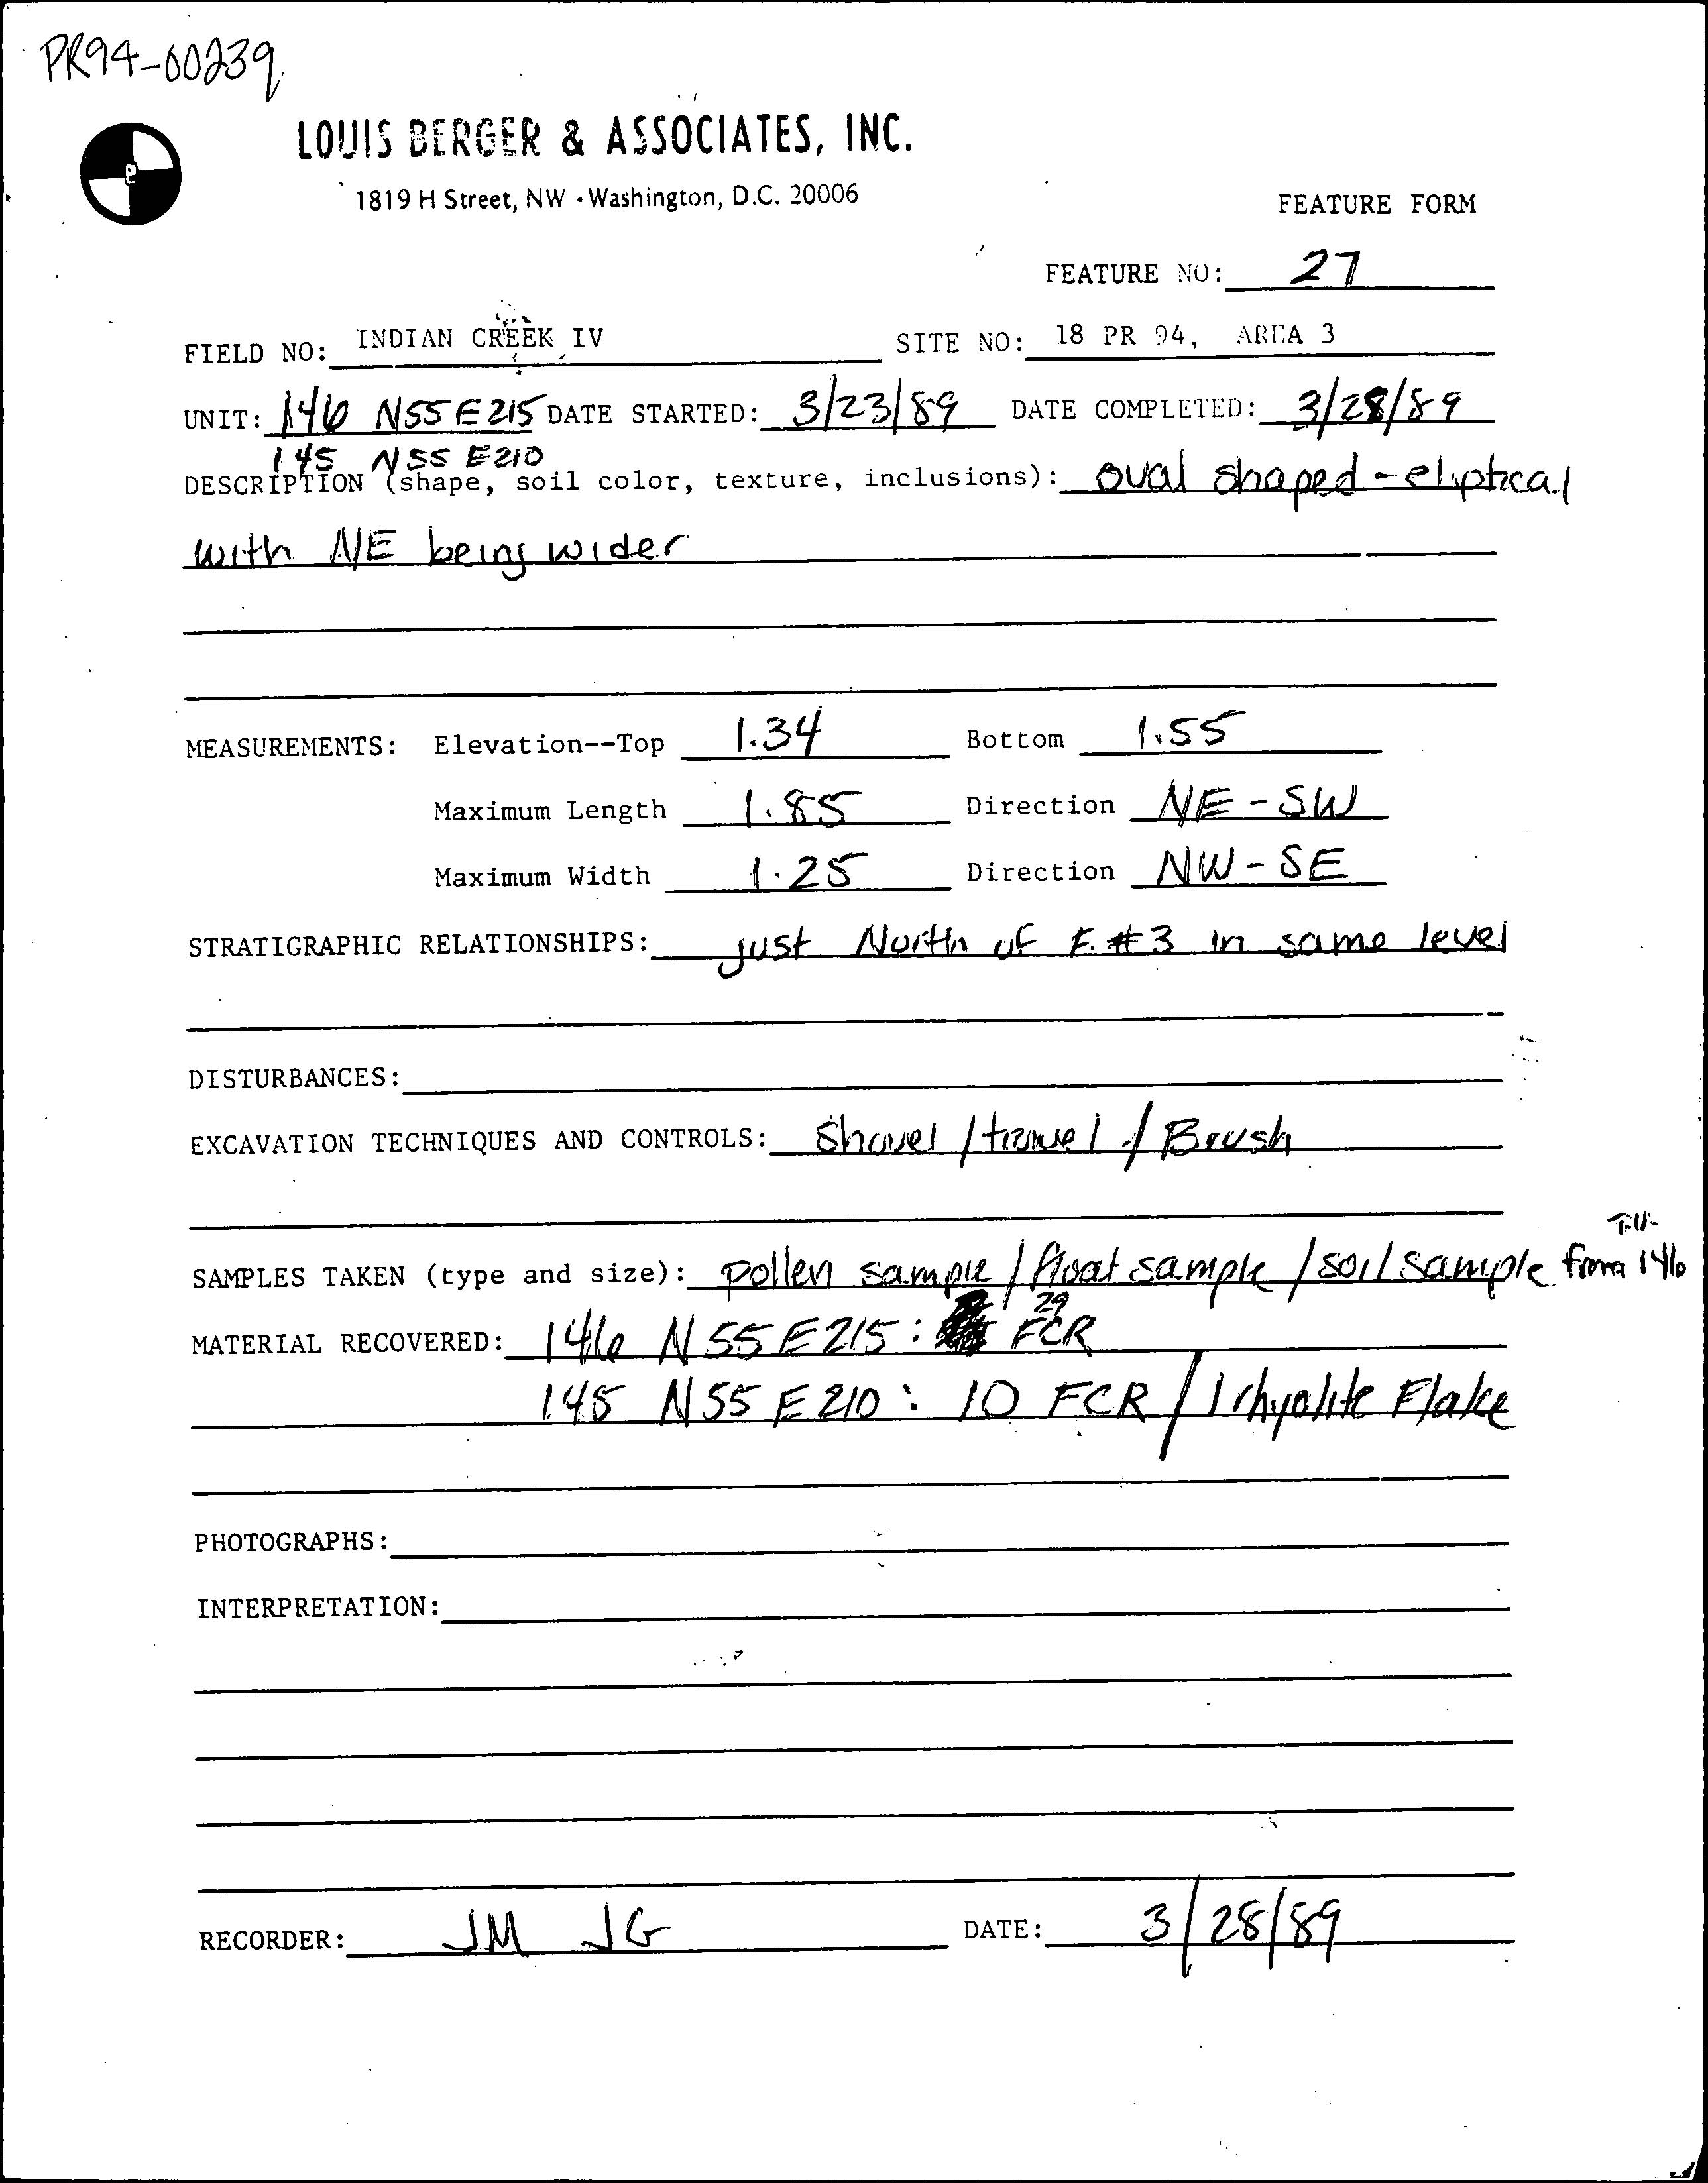 PR94-00239
LOUIS BERGER & ASSOCIATES, INC.
1819 H Street, NW · Washington, D.C. 20006
FEATURE FORM
FEATURE NO: 27
FIELD NO: INDIAN CREEK IV SITE NO: 18 PR 94, AREA 3
UNIT: 146 N55 E215 DATE STARTED: 3/23/89 DATE COMPLETED: 3/28/89
145 N55 E210
DESCRIPTION (shape, soil color, texture, inclusions): oval shaped - eliptical
with NE being wider
MEASUREMENTS: Elevation--Top 1.34 Bottom 1.55
Maximum Length 1.85 Direction NE - SW
Maximum Width 1.25 Direction NW - SE
STRATIGRAPHIC RELATIONSHIPS: just North of F. #3 in same level
DISTURBANCES:
EXCAVATION TECHNIQUES AND CONTROLS: Shovel / trowel / Brush
SAMPLES TAKEN (type and size): pollen sample / float sample / soil sample from 146
MATERIAL RECOVERED: 146 N55 E215: 29 FCR
145 N55 E210: 10 FCR / 1 rhyolite Flake
PHOTOGRAPHS:
INTERPRETATION:
RECORDER: JM JG DATE: 3/28/89